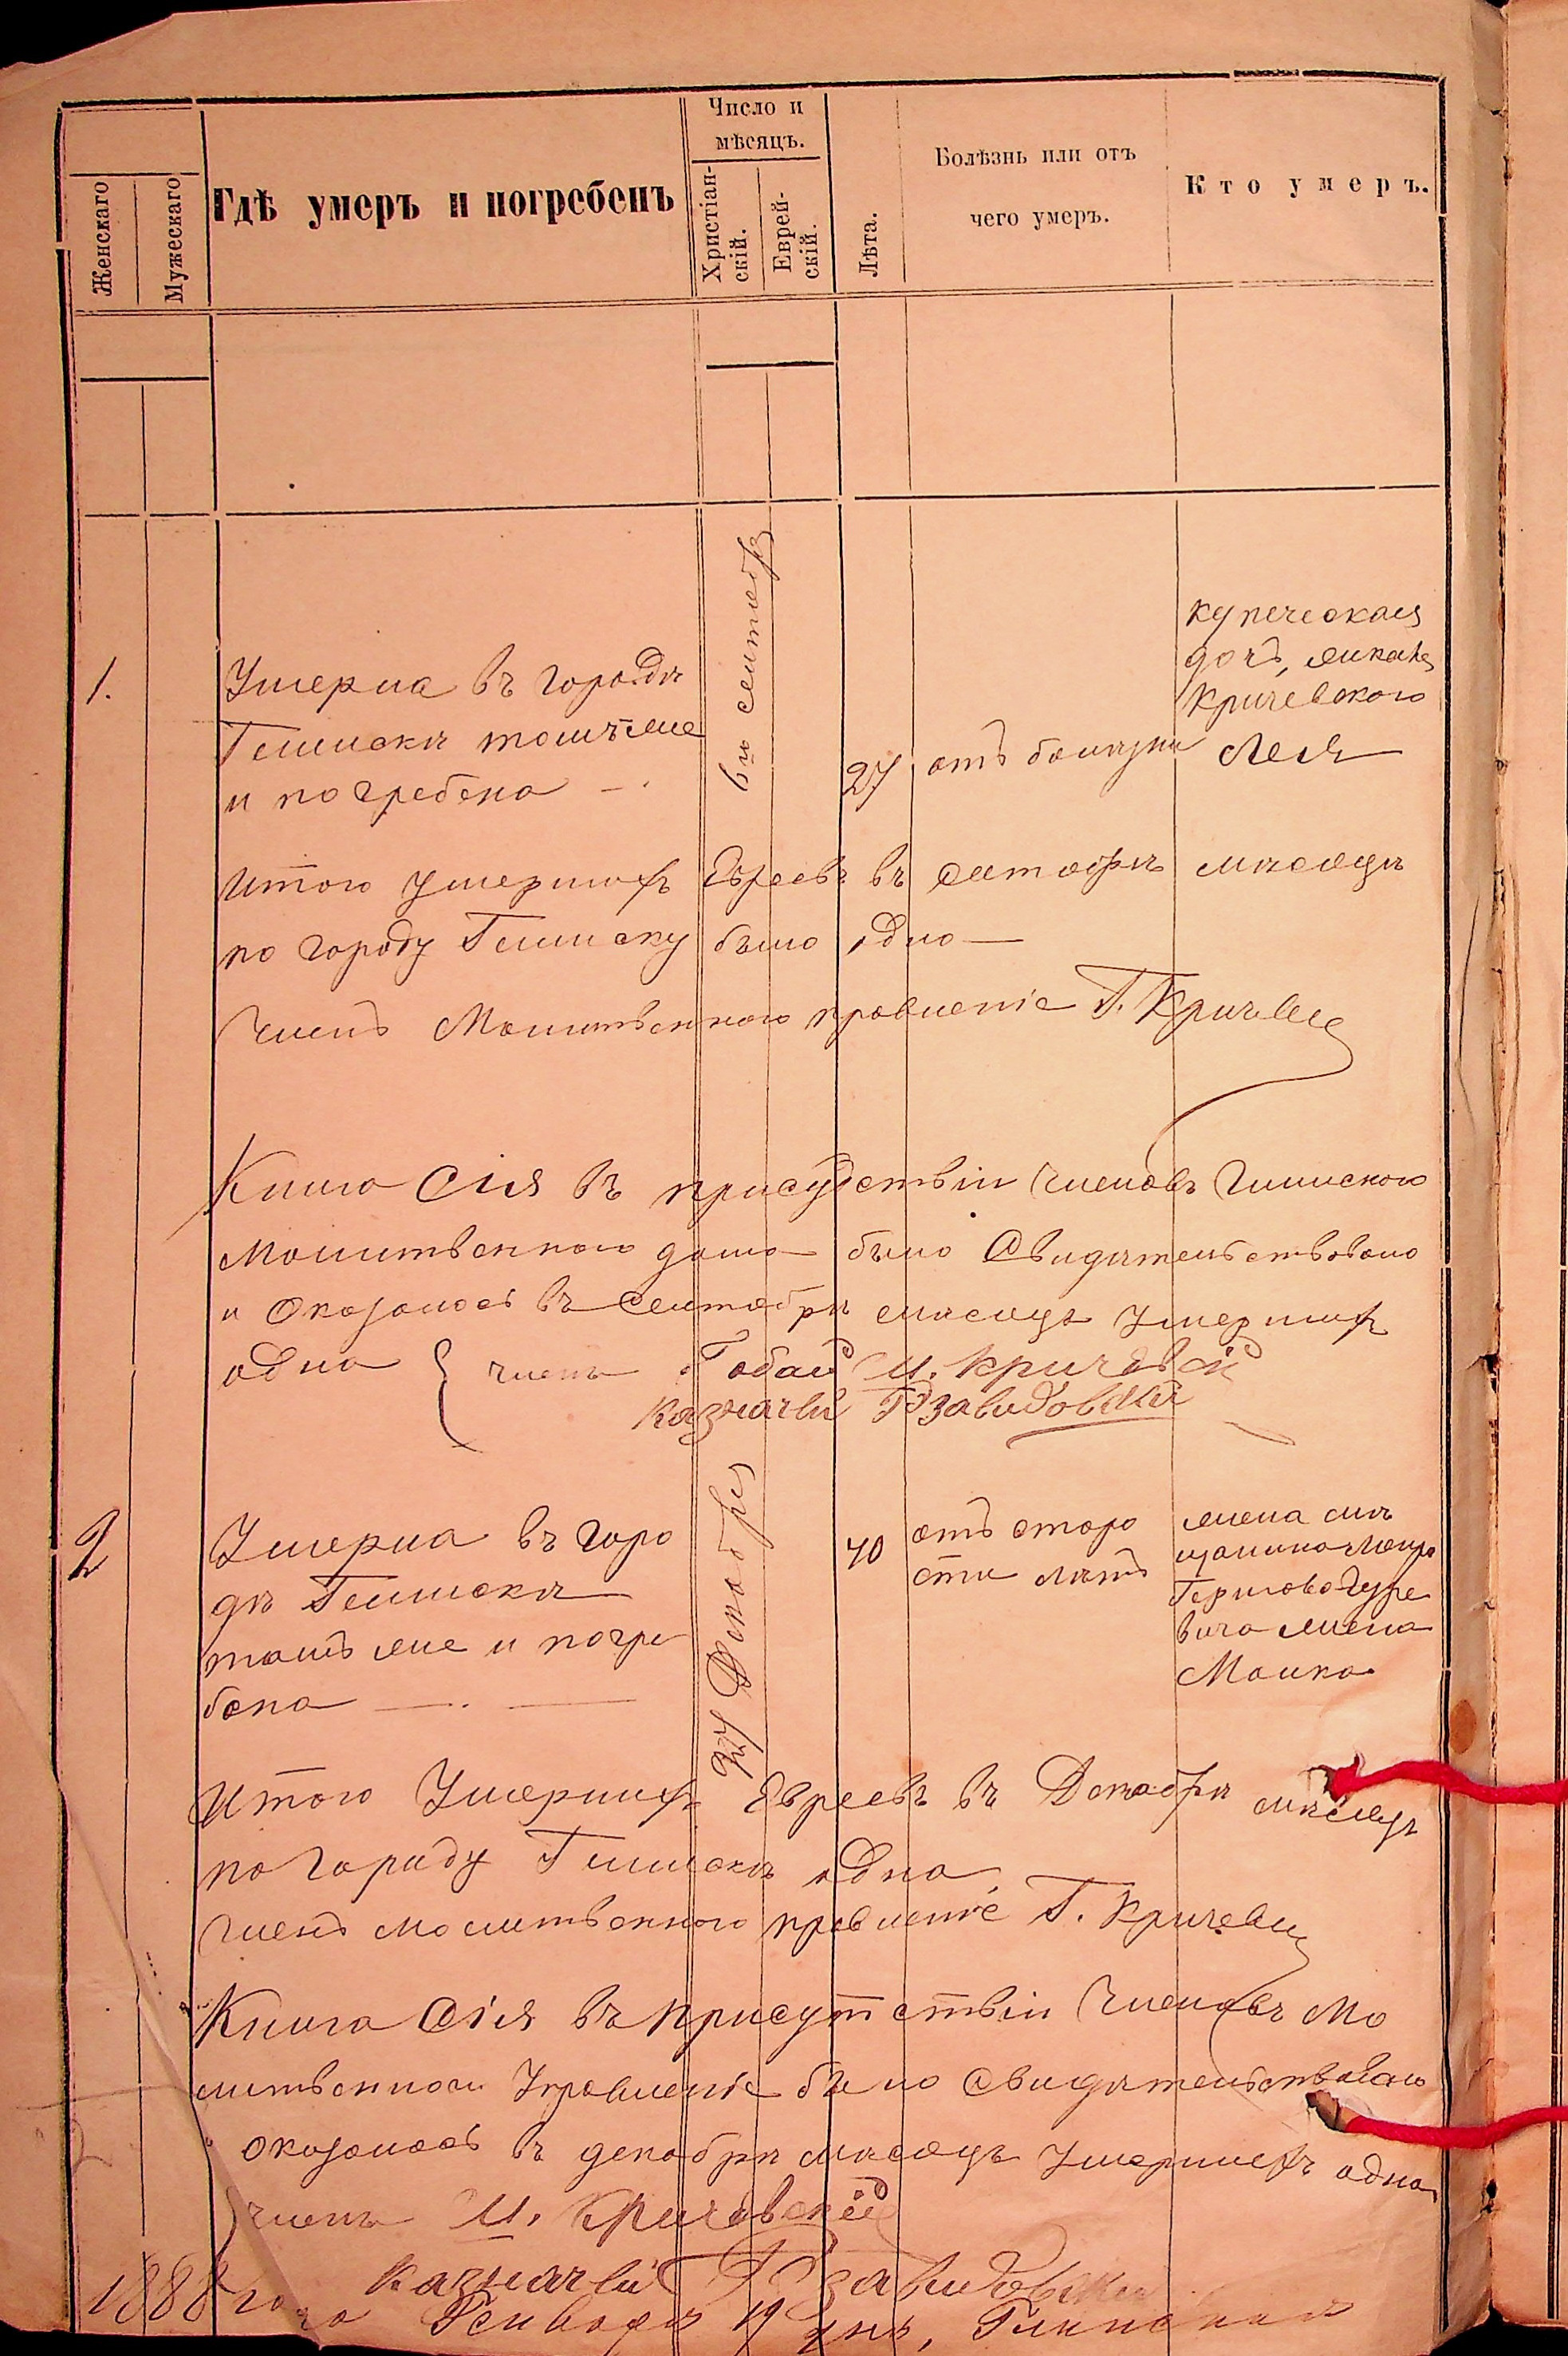 Женскаго
Мужескаго
Гдѣ умеръ и погребенъ
Число и
мѣсяцъ.
Христіан-
скій.
Еврей-
скій.
Лѣта.
Болѣзнь или отъ
чего умеръ.
Кто умеръ.
1.
Умерла въ городѣ
Глинскѣ тамъ же
и погребена
6го сентября
27
отъ болѣзни
купеческая
дочь
Кричевского
Леля
Итого умершихъ Евреевъ въ сентябрѣ мѣсяцѣ
по городу Глинску было одно
Членъ Молитвенного правленіе Г. Кричевс
Книга Сія въ присудствіи членовъ Глинского
Молитвенного дома было Свидѣтельствовано
и Оказалось въ Сентябрѣ мѣсяцѣ Умершихъ
одна члены М. Кричевскій
Казначей Завидовскій
2
Умерла въ горо
дѣ Глинскѣ
тамъ же и погре
бена
24 Декабря
70
отъ старо
сти лѣтъ
жена мѣ
щанина
Гершова Гуре
вича жена
Малка
Итого Умершихъ Евреевъ въ Декабрѣ мѣсяцѣ
по Городу Глинскѣ одна
Членъ молитвенного правленіе Г. Кричевс
Книга Сія въ присутствіи Членовъ Мо
литвенного Управленіе было Свидѣтельствовано
Оказалось въ декабрѣ мѣсяцѣ Умершихъ одна
члены М. Кричевскій
Казначей Завидовскій
1888 года Генваря 19 дня, Глинскъ